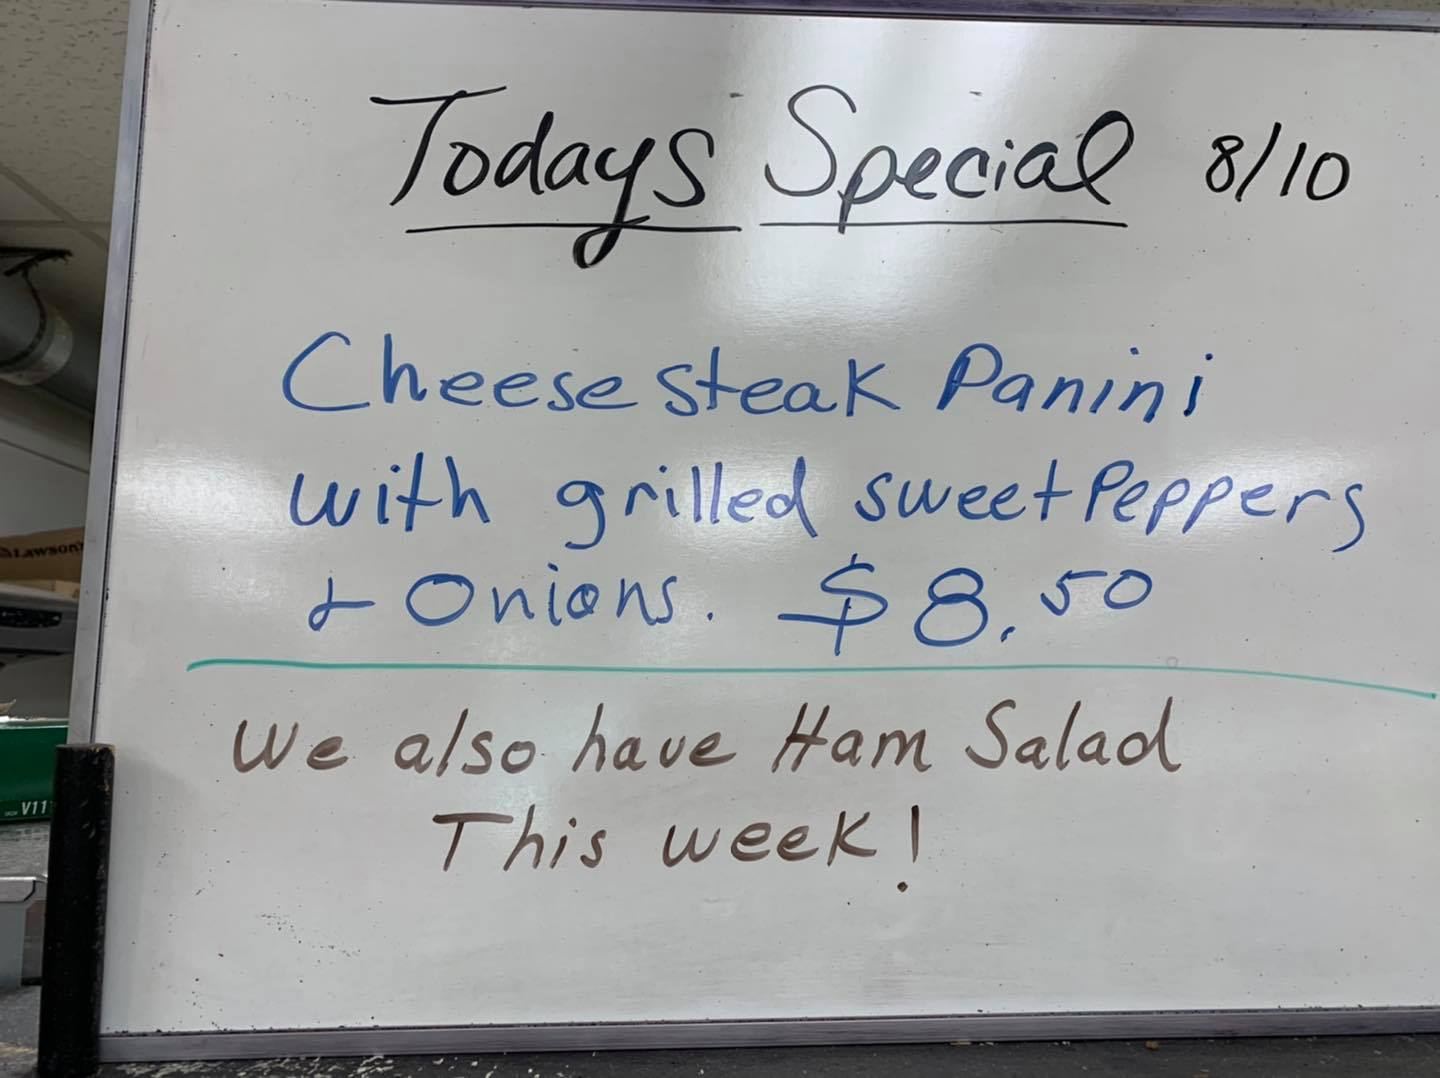 Todays Special 8/10
Cheese steak Panini
with grilled sweet Peppers
& Onions. $8.50
We also have Ham Salad
This week!
Lawson
V11